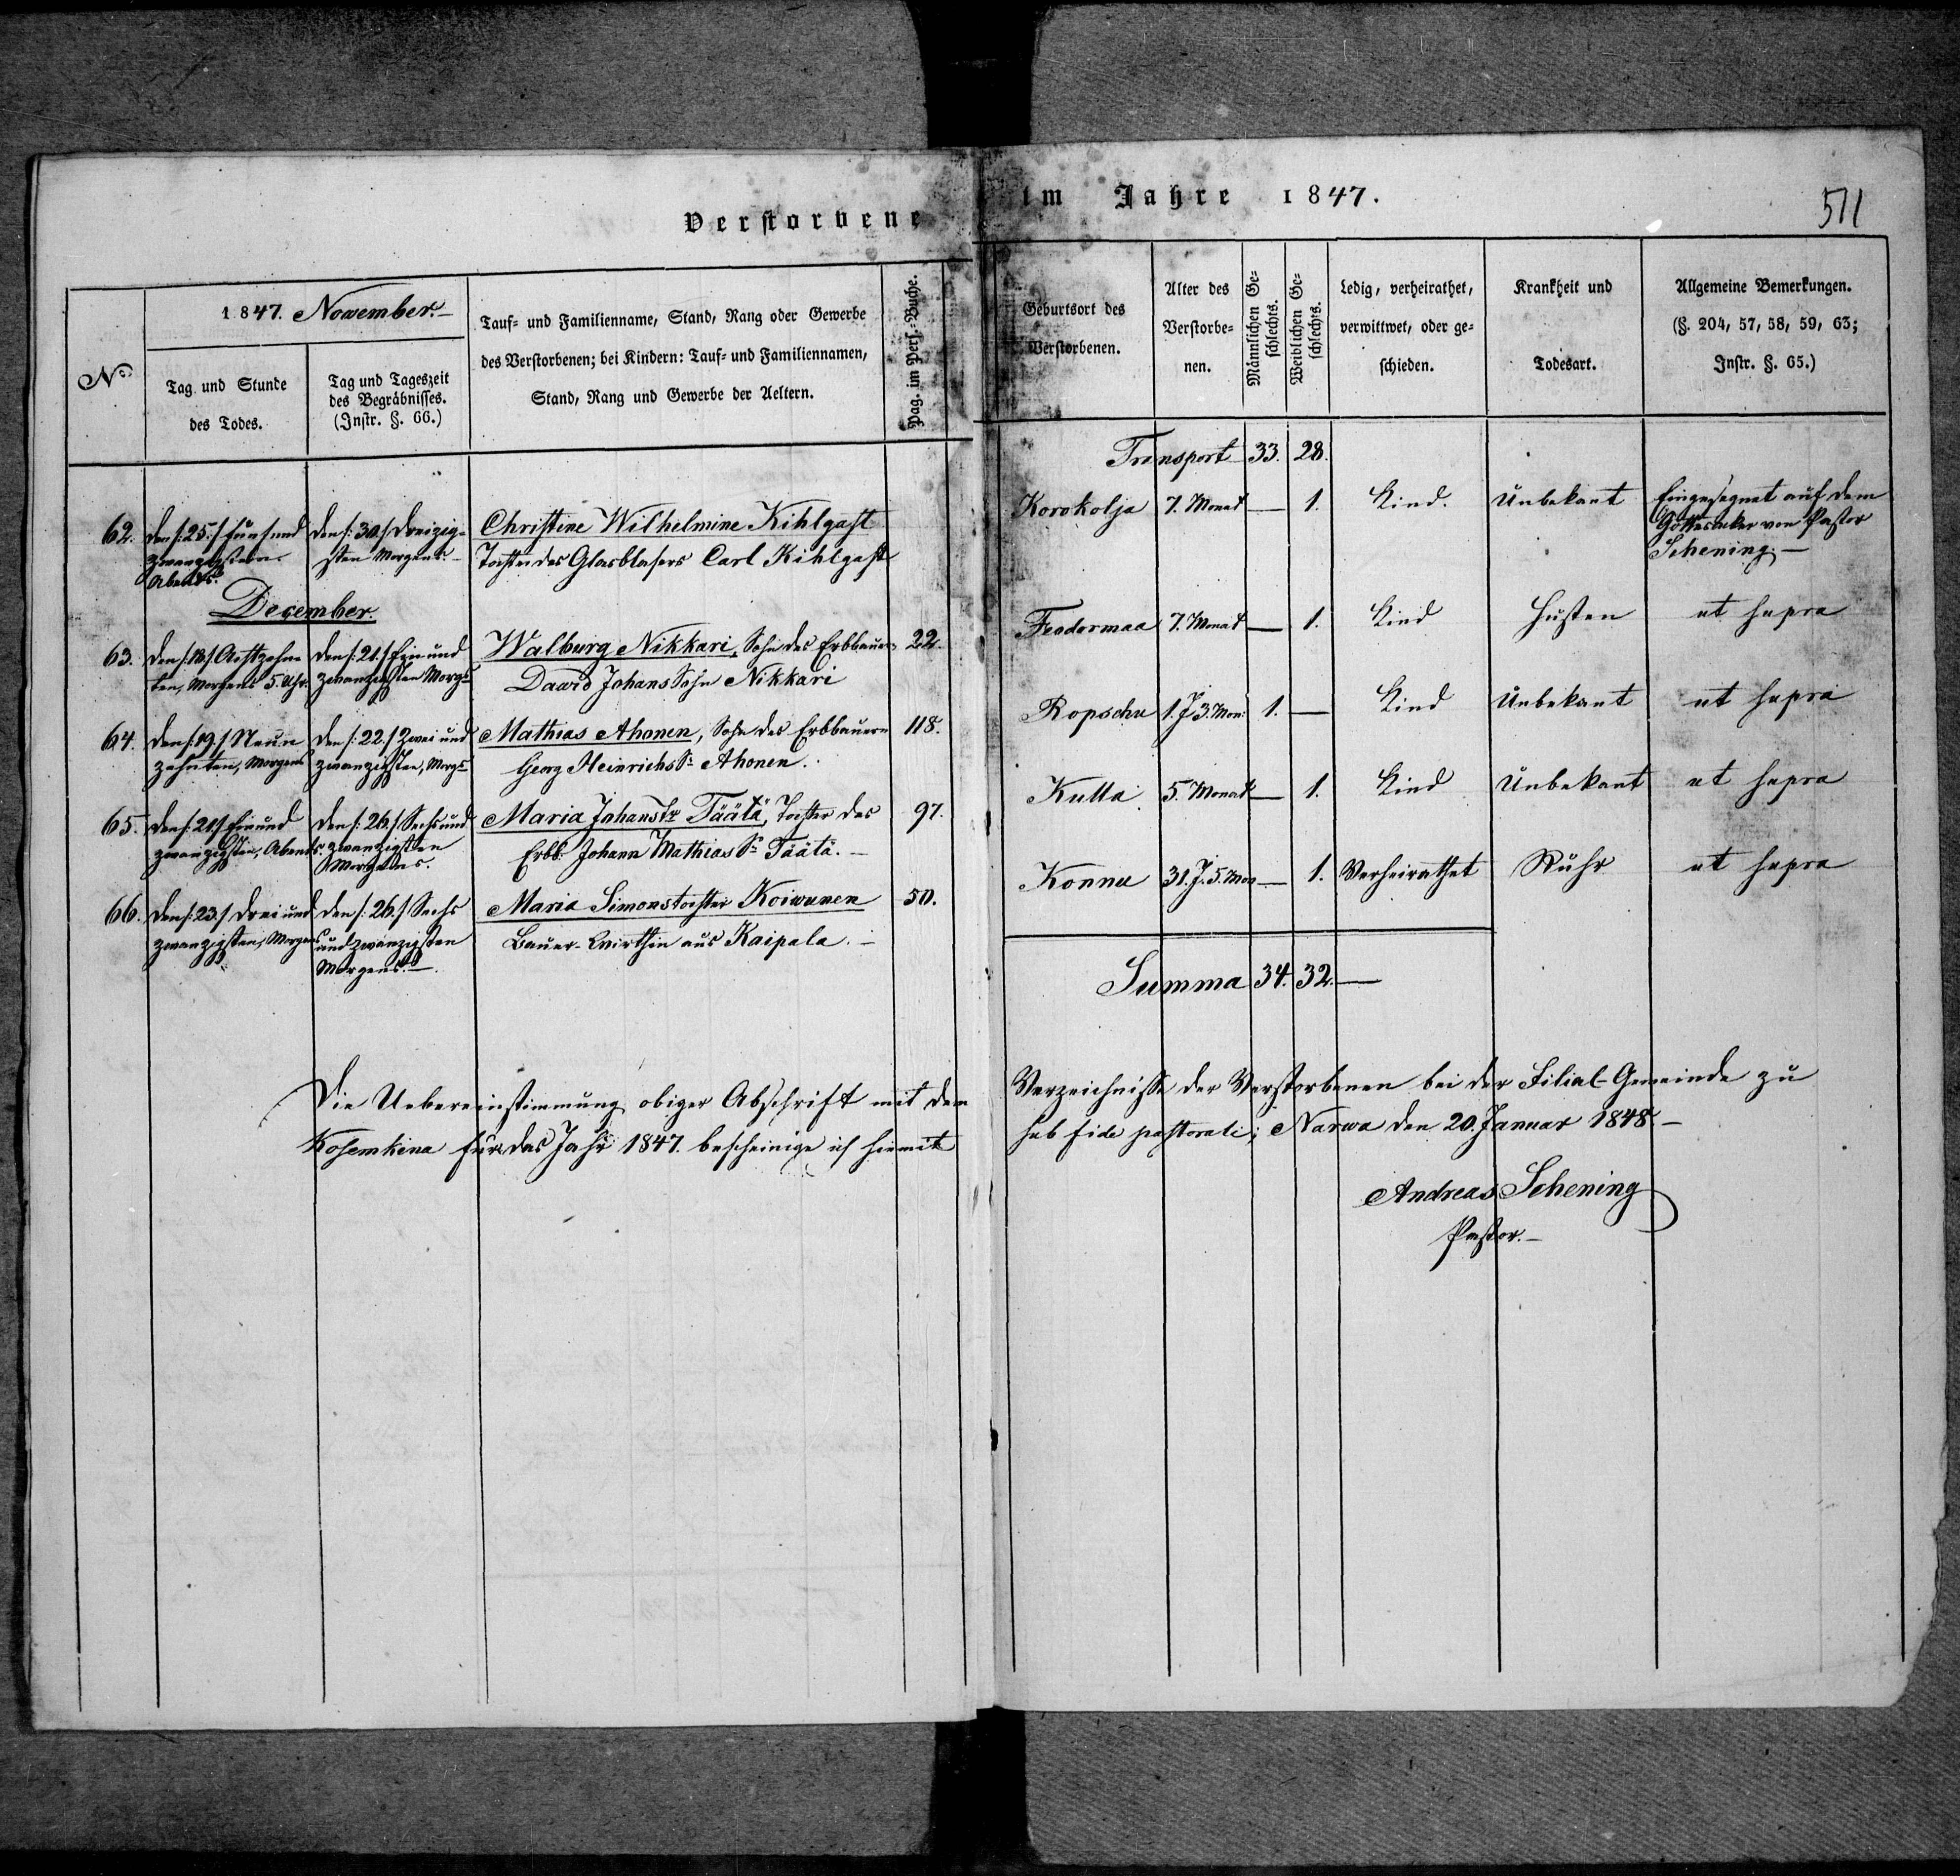 Verstorbene im Jahre 1847.
511
No
1847. November.
Tag und Stunde
des Todes.
Tag und Tageszeit
des Begräbnisses.
(Instr. §. 66.)
Tauf- und Familienname, Stand, Rang oder Gewerbe
des Verstorbenen; bei Kindern: Tauf- und Familiennamen,
Stand, Rang und Gewerbe der Aeltern.
Pag. im Pers.-Buche.
Geburtsort des
Verstorbenen.
Alter des
Verstorbe-
nen.
Männlichen Ge-
schlechts.
Weiblichen Ge-
schlechts.
Ledig, verheirathet,
verwittwet, oder ge-
schieden.
Krankheit und
Todesart.
Allgemeine Bemerkungen.
(§. 204, 57, 58, 59, 63;
Instr. §. 65.)
Transport 33. 28.
62.
den /:25:/ fünfund
zwanzigsten
Abends.
den /:30:/ dreizig-
sten Morgens.
Christine Wilhelmine Kihlgast
Tochter des Glasblasers Carl Kihlgast
Korokolja
7. Monat
— 1.
Kind.
Unbekant
Eingesegnet auf dem
Gottesacker von Pastor
Schening. —
December.
63.
den /:18:/ Achtzehn
ten, Morgens 5. Uhr.
den /:21:/ Ein und
zwanzigsten Morgs
Walburg Nikkari, Sohn des Erbbauern
Dawid Johans Sohn Nikkari
22.
Feodermaa
7. Monat
— 1.
Kind
Husten
ut supra
64.
den /:19:/ Neun
zehnten, Morgens
den /:22:/ Zwei und
zwanzigsten, Morgs
Mathias Ahonen, Sohn des Erbbauern
Georg Heinrichs Sn Ahonen.
118.
Ropschu
1. J 3. Mon:
1. —
Kind
Unbekant
ut supra
65.
den /:21:/ Einund
zwanzigsten, Abends.
den /:26:/ Sechs und
zwanzigsten
Morgens.
Maria Johanstr Täätä, Tochter des
Erbb: Johann Mathias Sn Täätä. —
97.
Kulla
5. Monat
— 1.
Kind
Unbekant
ut supra
66.
den /:23:/ drei und
zwanzigsten, Morgens
den /:26:/ Sechs
und zwanzigsten
Morgens. —
Maria Simonstochter Koiwunen
Bauer-Wirthin aus Kaipala. —
50.
Konnu
31. J. 5. Mon
— 1.
Verheirathet
Ruhr
ut supra
Summa 34. 32. —
Die Uebereinstimmung obiger Abschrift mit dem Verzeichnisse der Verstorbenen bei der Filial-Gemeinde zu
Kosemkina für das Jahr 1847. bescheinige ich hiemit sub fide pastorali; Narwa den 20. Januar 1848. —
Andreas Schening
Pastor. —